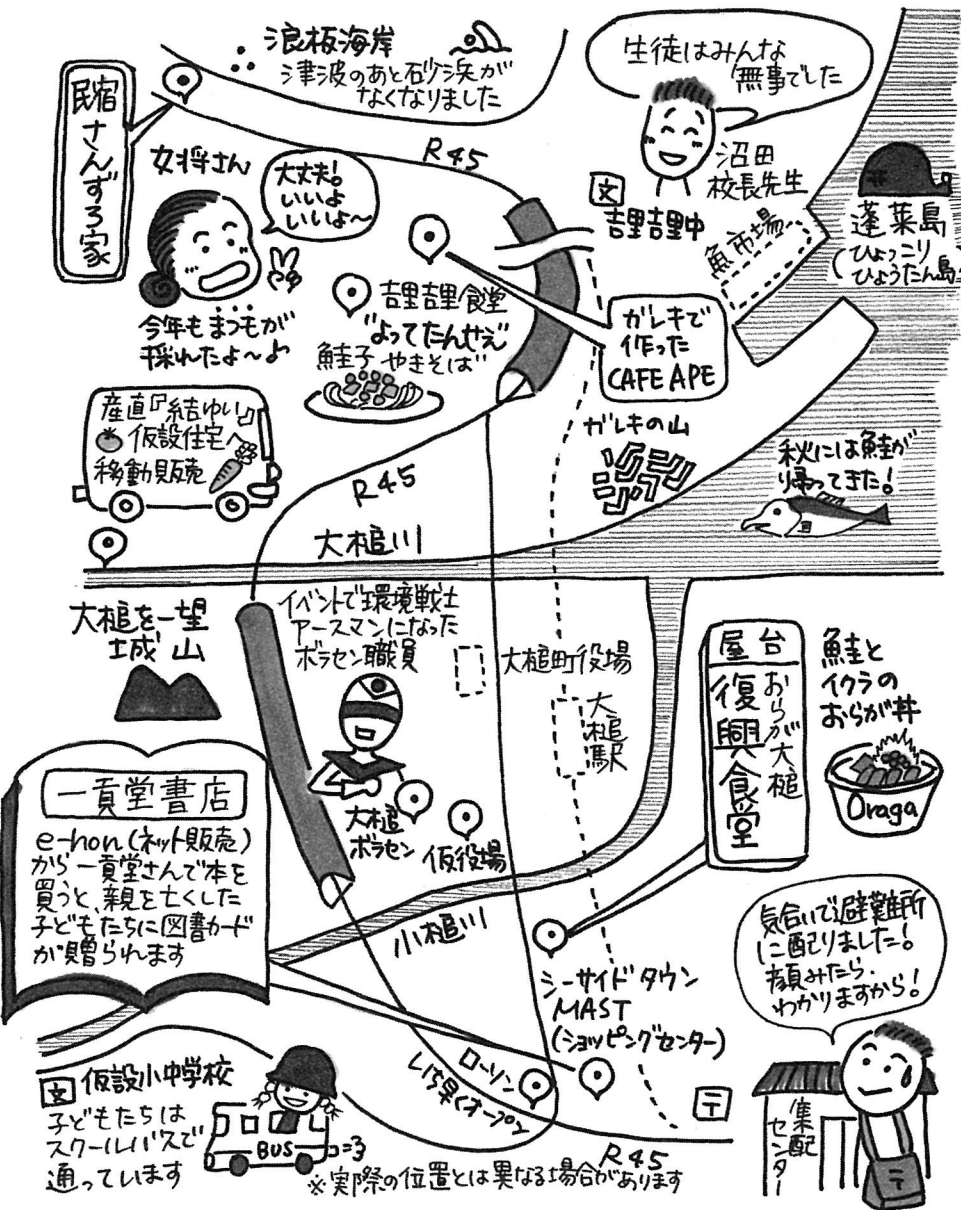 浪板海岸
津波のあと砂浜が
なくなりました
民宿さんずろ家
生徒はみんな
無事でした
沼田
校長先生
文
吉里吉里中
R45
女将さん
大丈夫!
いいよ
いいよ~
今年もまつもが
採れたよ~♪
魚市場
蓬莱島
(ひょっこり
ひょうたん島)
吉里吉里食堂
"よってたんせえ"
鮭子やきそば
ガレキで
作った
CAFE APE
産直『結ゆい』
仮設住宅へ
移動販売
ガレキの山
R45
秋には鮭が
帰ってきた!
大槌川
大槌を一望
城山
イベントで環境戦士
アースマンになった
ボラセン職員
大槌町役場
大槌駅
屋台
おらが大槌
復興食堂
鮭と
イクラの
おらが丼
Oraga
一頁堂書店
e-hon(ネット販売)
から一頁堂さんで本を
買うと、親を亡くした
子どもたちに図書カード
が贈られます
大槌
ボラセン
仮役場
小槌川
シーサイドタウン
MAST
(ショッピングセンター)
気合いで避難所
に配りました!
顔みたら、
わかりますから!
文
仮設小中学校
子どもたちは
スクールバスで
通っています
BUS
ローソン
いち早くオープン
〒
集配
センター
〒
R45
※実際の位置とは異なる場合があります